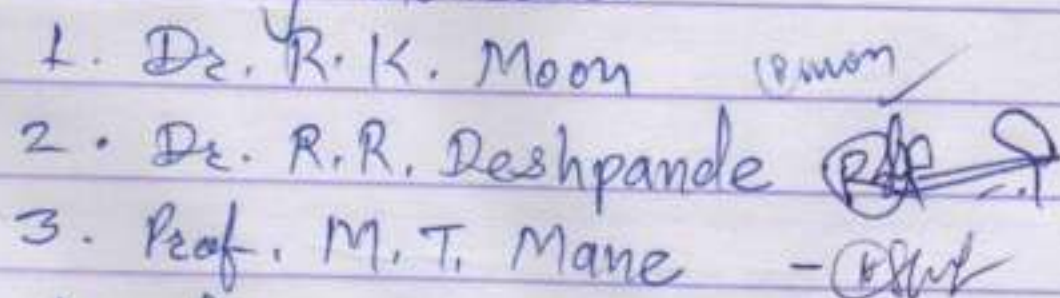 1. Dr. R. K. Moon
2. Dr. R. R. Deshpande
3. Prof. M. T. Mane -